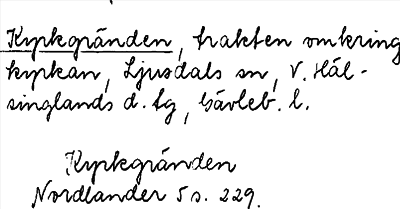 Kyrkgränden, trakten omkring
kyrkan, Ljusdals sn, V. Häl-
singlands d. tg, Gävleb. l.
Kyrkgränden
Nordlander 5 s. 229.